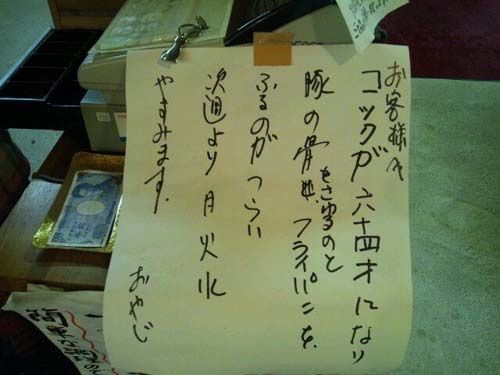 お客様へ
コックが六十四才になり
豚の骨をさわるのと
フライパンを
ふるのがつらい
次週より月火水
やすみます。
おやじ